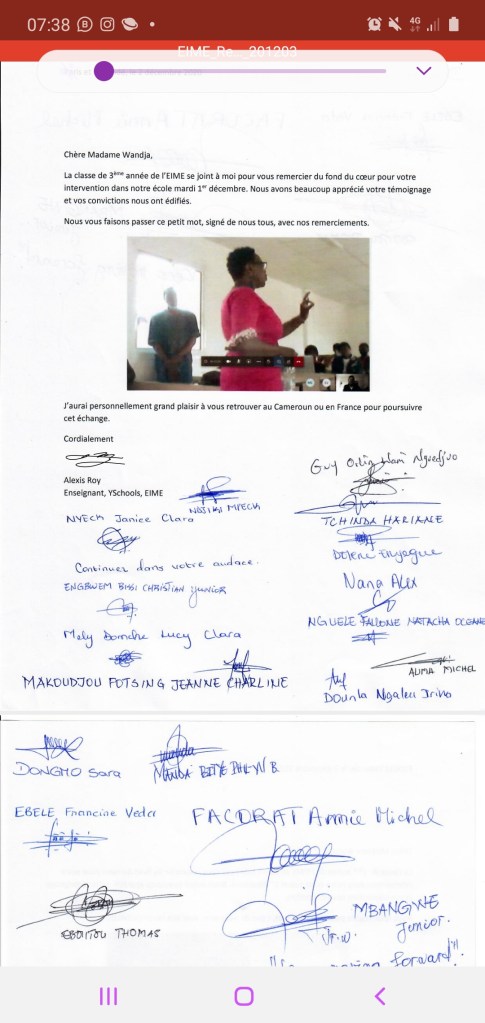 07:38
4G
EIME_Re..._201203
Chère Madame Wandja,
La classe de 3ème année de l'EIME se joint à moi pour vous remercier du fond du cœur pour votre
intervention dans notre école mardi 1er décembre. Nous avons beaucoup apprécié votre témoignage
et vos convictions nous ont édifiés.
Nous vous faisons passer ce petit mot, signé de nous tous, avec nos remerciements.
J'aurai personnellement grand plaisir à vous retrouver au Cameroun ou en France pour poursuivre
cet échange.
Cordialement
Alexis Roy
Enseignant, YSchools, EIME
Guy
NYECK Janice Clara
TCHINDA HARIANE
Continuez dans votre audace.
ENGBWEM BISSI CHRISTIAN Junior
Nana Alex
NGUELE FALLONE NATACHA OCEANE
Mely Lucy Clara
ALIMA MICHEL
MAKOUDJOU FOTSING JEANNE CHARLINE
Dounla Ngaleu
DONGMO Sara
MANDA
EBELE Francine
FACORAT Annie Michel
MBANGWE
Junior.
THOMAS
forward".